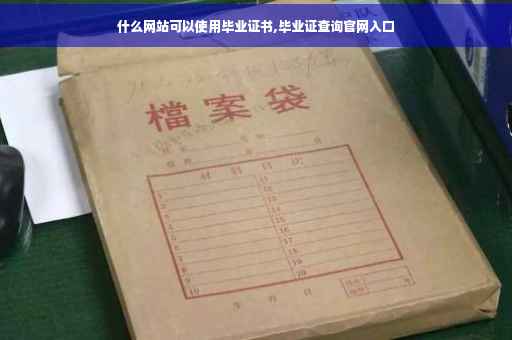 什么网站可以使用毕业证书,毕业证查询官网入口
檔案袋
材料目次
1 11
2 12
3 13
4 14
5 15
6 16
7 17
8 18
9 19
10 20
年 月 日